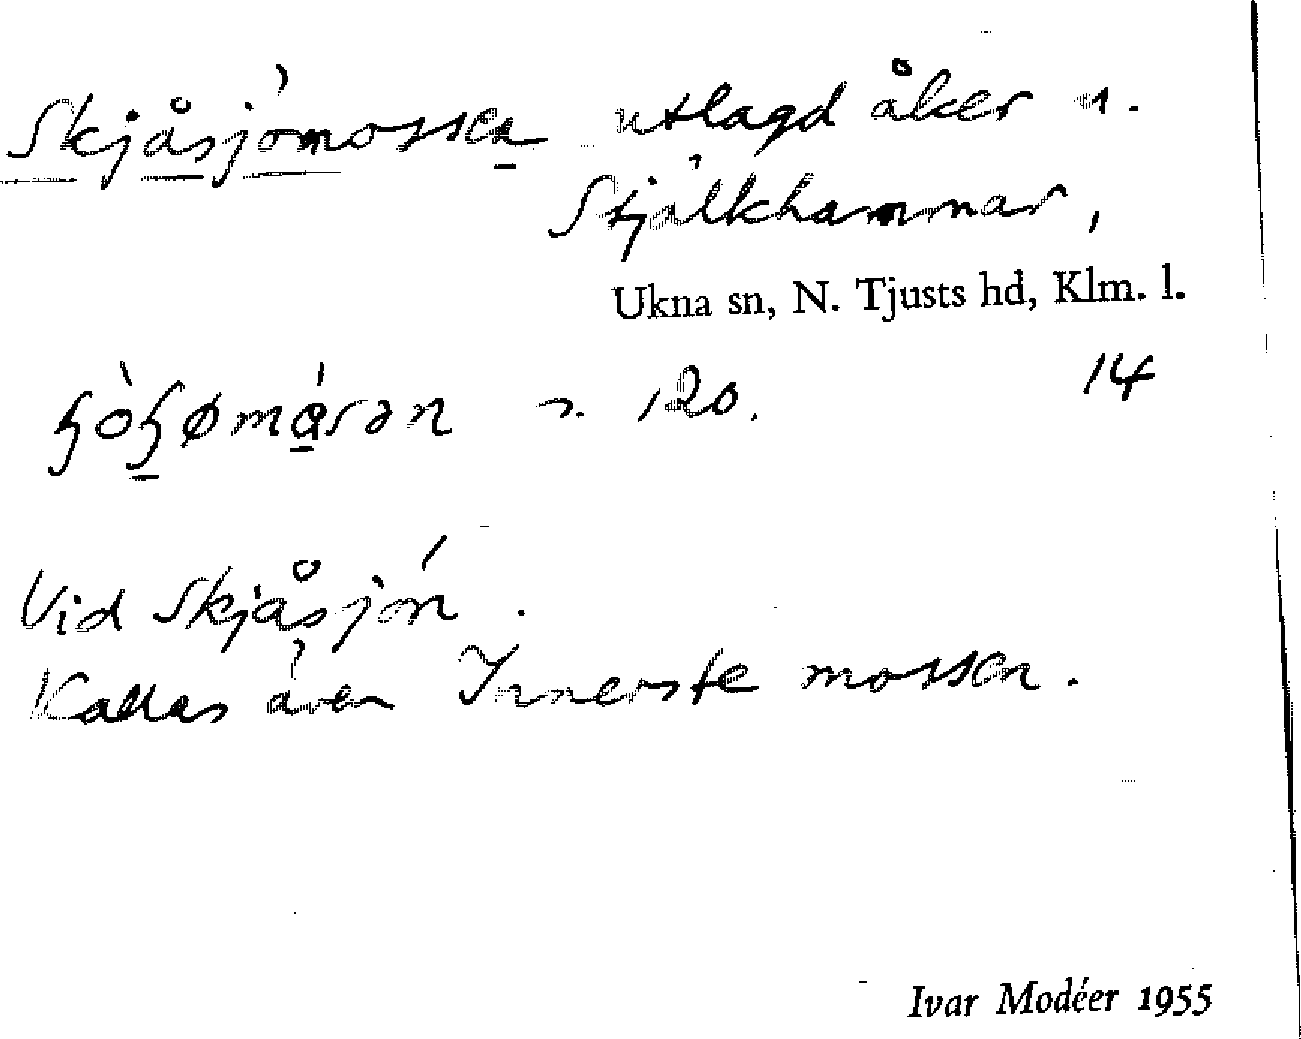 Skjåsjömossen utlagd åker u.
Stjälkhammar,
Ukna sn, N. Tjusts hd, Klm. l.
ɧòɧømásən 120. 14
Vid Skjåsjön.
Kallas även Innerste mossen.
Ivar Modéer 1955